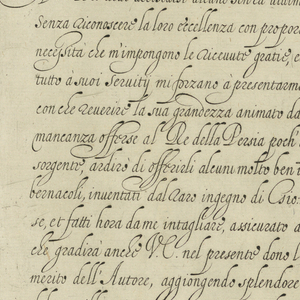 Senza riconoscere la loro eccellenza con propor
necessità che m'impongono le riceuute gratie, e
tutto a suoi Seruity mi forzano à presentarme
con che reuerire la sua grandezza animato da
mancanza offerse al Re della Persia poch
sorgente, ardirò di offerirli alcuni molto ben i
bernacoli, inuentati dal raro ingegno di Gio
se, et fatti hora da me intagliare, assicurato a
che, gradirà anche V.C. nel presente dono l
merito dell'Autore, aggiongendo splendore